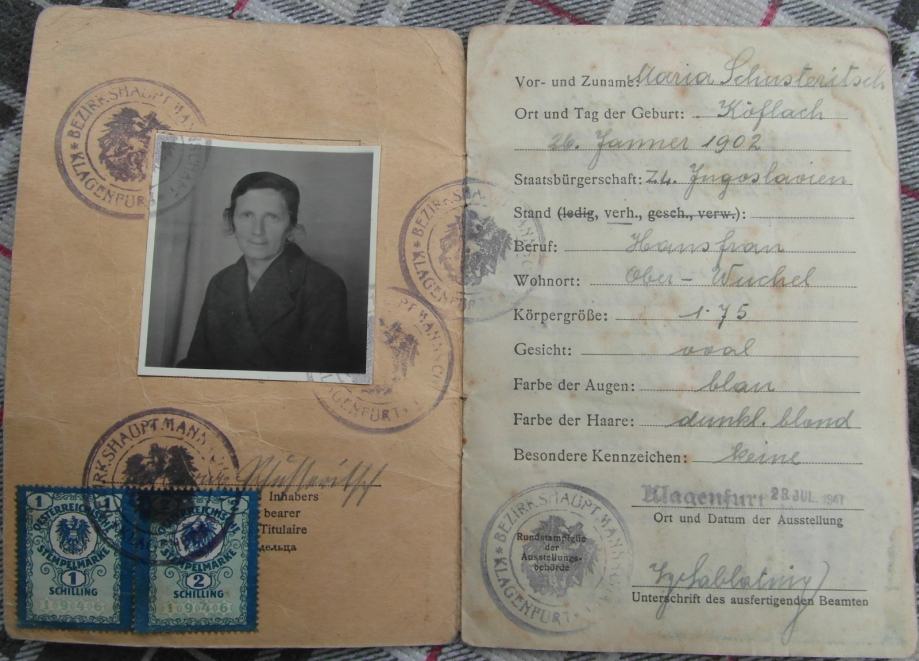 BEZIRKSHAUPTMANNSCHAFT
KLAGENFURT
Schusteritsch
Inhabers
bearer
Titulaire
дельца
1 1
ÖSTERREICHISCHE
STEMPELMARKE
1
SCHILLING
2
ÖSTERREICHISCHE
STEMPELMARKE
2
SCHILLING
Vor- und Zuname: Maria Schusteritsch
Ort und Tag der Geburt: Köflach
26. Jänner 1902
Staatsbürgerschaft: Zt. Jugoslavien
Stand (ledig, verh., gesch., verw.):
Beruf: Hausfrau
Wohnort: Ober-Wuchel
Körpergröße: 1.75
Gesicht: oval
Farbe der Augen: blau
Farbe der Haare: dunkl. blond
Besondere Kennzeichen: keine
Klagenfurt 28. JUL. 1947
Ort und Datum der Ausstellung
BEZIRKSHAUPTMANNSCHAFT
KLAGENFURT
Rundstampiglie
der
Ausstellungs-
behörde
Unterschrift des ausfertigenden Beamten